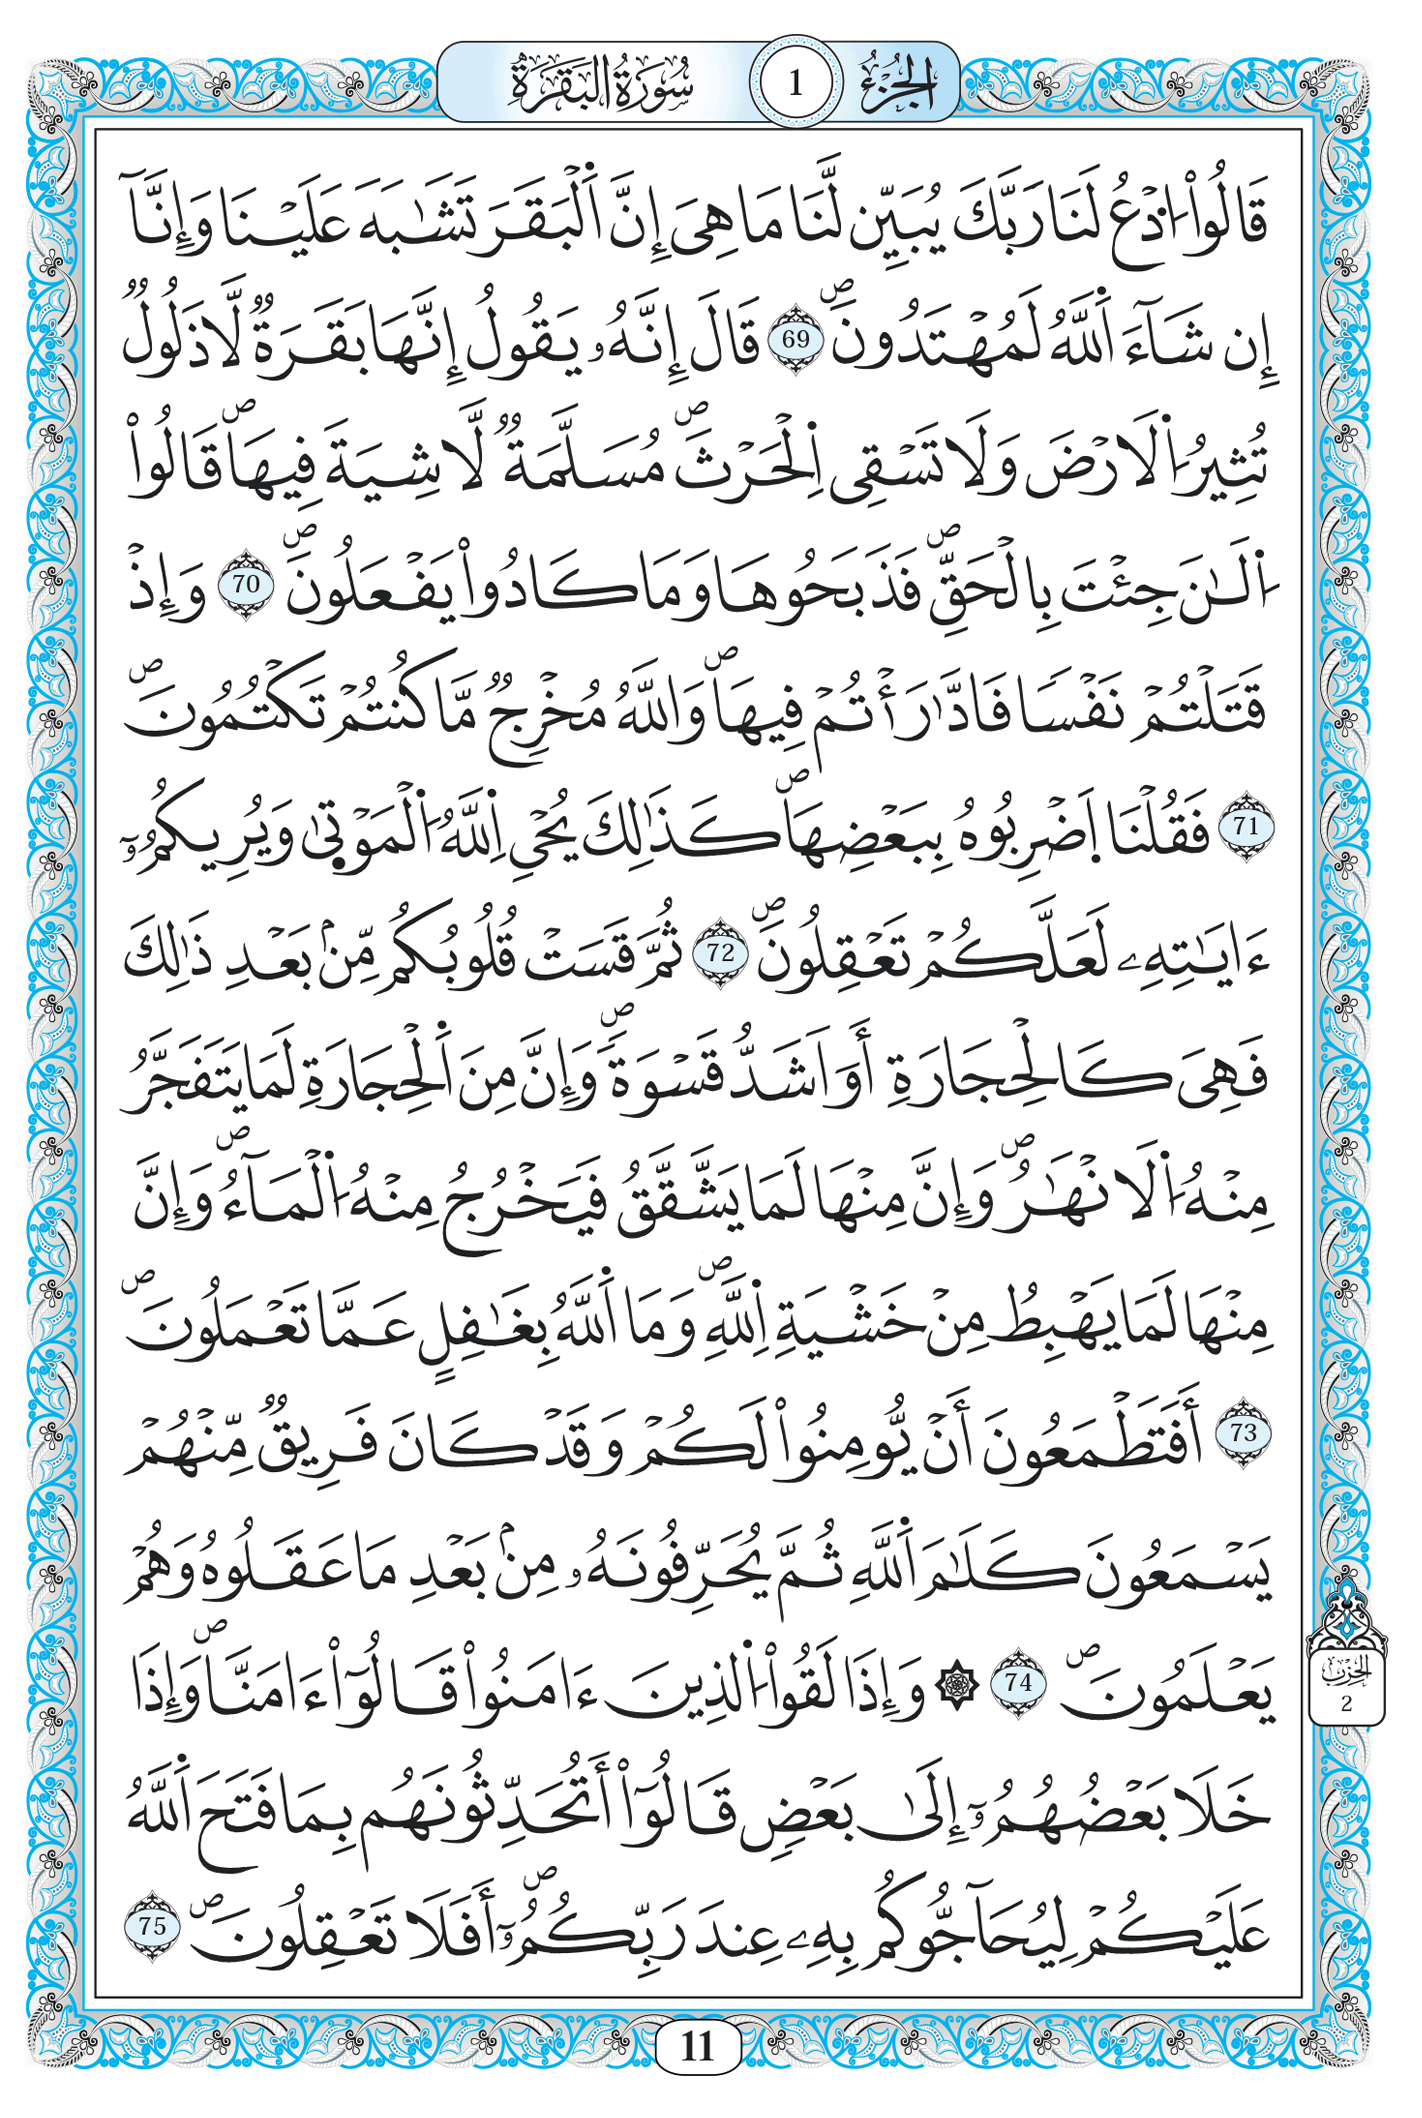 الجُزْءُ 1 سُورَةُ البَقَرَةِ
قَالُواْ اُدْعُ لَنَا رَبَّكَ يُبَيِّن لَّنَا مَا هِىَ إِنَّ اَ۬لْبَقَرَ تَشَٰبَهَ عَلَيْنَا وَإِنَّآ
إِن شَآءَ اَ۬للَّهُ لَمُهْتَدُونَۖ 69 قَالَ إِنَّهُۥ يَقُولُ إِنَّهَا بَقَرَةٞ لَّا ذَلُولٞ
تُثِيرُ اُ۬لَارْضَ وَلَا تَسْقِى اِ۬لْحَرْثَۖ مُسَلَّمَةٞ لَّا شِيَةَ فِيهَاۖ قَالُواْ
اُ۬لَٰنَ جِئْتَ بِالْحَقِّۖ فَذَبَحُوهَا وَمَا كَادُواْ يَفْعَلُونَۖ 70 وَإِذْ
قَتَلْتُمْ نَفْساٗ فَادَّٰرَْٰٔتُمْ فِيهَاۖ وَاللَّهُ مُخْرِجٞ مَّا كُنتُمْ تَكْتُمُونَۖ
71 فَقُلْنَا اَضْرِبُوهُ بِبَعْضِهَاۖ كَذَٰلِكَ يُحْىِ اِ۬للَّهُ اُ۬لْمَوْت۪ىٰ وَيُرِيكُمُۥٓ
ءَايَٰتِهِۦ لَعَلَّكُمْ تَعْقِلُونَۖ 72 ثُمَّ قَسَتْ قُلُوبُكُم مِّنۢ بَعْدِ ذَٰلِكَ
فَهِىَ كَالْحِجَارَةِ أَوَ اَشَدُّ قَسْوَةٗۖ وَإِنَّ مِنَ اَ۬لْحِجَارَةِ لَمَا يَتَفَجَّرُ
مِنْهُ اُ۬لَانْهَٰرُۖ وَإِنَّ مِنْهَا لَمَا يَشَّقَّقُ فَيَخْرُجُ مِنْهُ اُ۬لْمَآءُۖ وَإِنَّ
مِنْهَا لَمَا يَهْبِطُ مِنْ خَشْيَةِ اِ۬للَّهِۖ وَمَا اَ۬للَّهُ بِغَٰفِلٍ عَمَّا تَعْمَلُونَۖ
73 أَفَتَطْمَعُونَ أَنْ يُّومِنُواْ لَكُمْ وَقَدْ كَانَ فَرِيقٞ مِّنْهُمْ
يَسْمَعُونَ كَلَٰمَ اَ۬للَّهِ ثُمَّ يُحَرِّفُونَهُۥ مِنۢ بَعْدِ مَا عَقَلُوهُ وَهُمْ
يَعْلَمُونَۖ 74 ۞ وَإِذَا لَقُواْ اُ۬لذِينَ ءَامَنُواْ قَالُوٓاْ ءَامَنَّاۖ وَإِذَا
خَلَا بَعْضُهُمُۥٓ إِلَىٰ بَعْضٖ قَالُوٓاْ أَتُحَدِّثُونَهُم بِمَا فَتَحَ اَ۬للَّهُ
عَلَيْكُمْ لِيُحَآجُّوكُم بِهِۦ عِندَ رَبِّكُمُۥٓۖ أَفَلَا تَعْقِلُونَۖ 75
الحِزْب
2
11